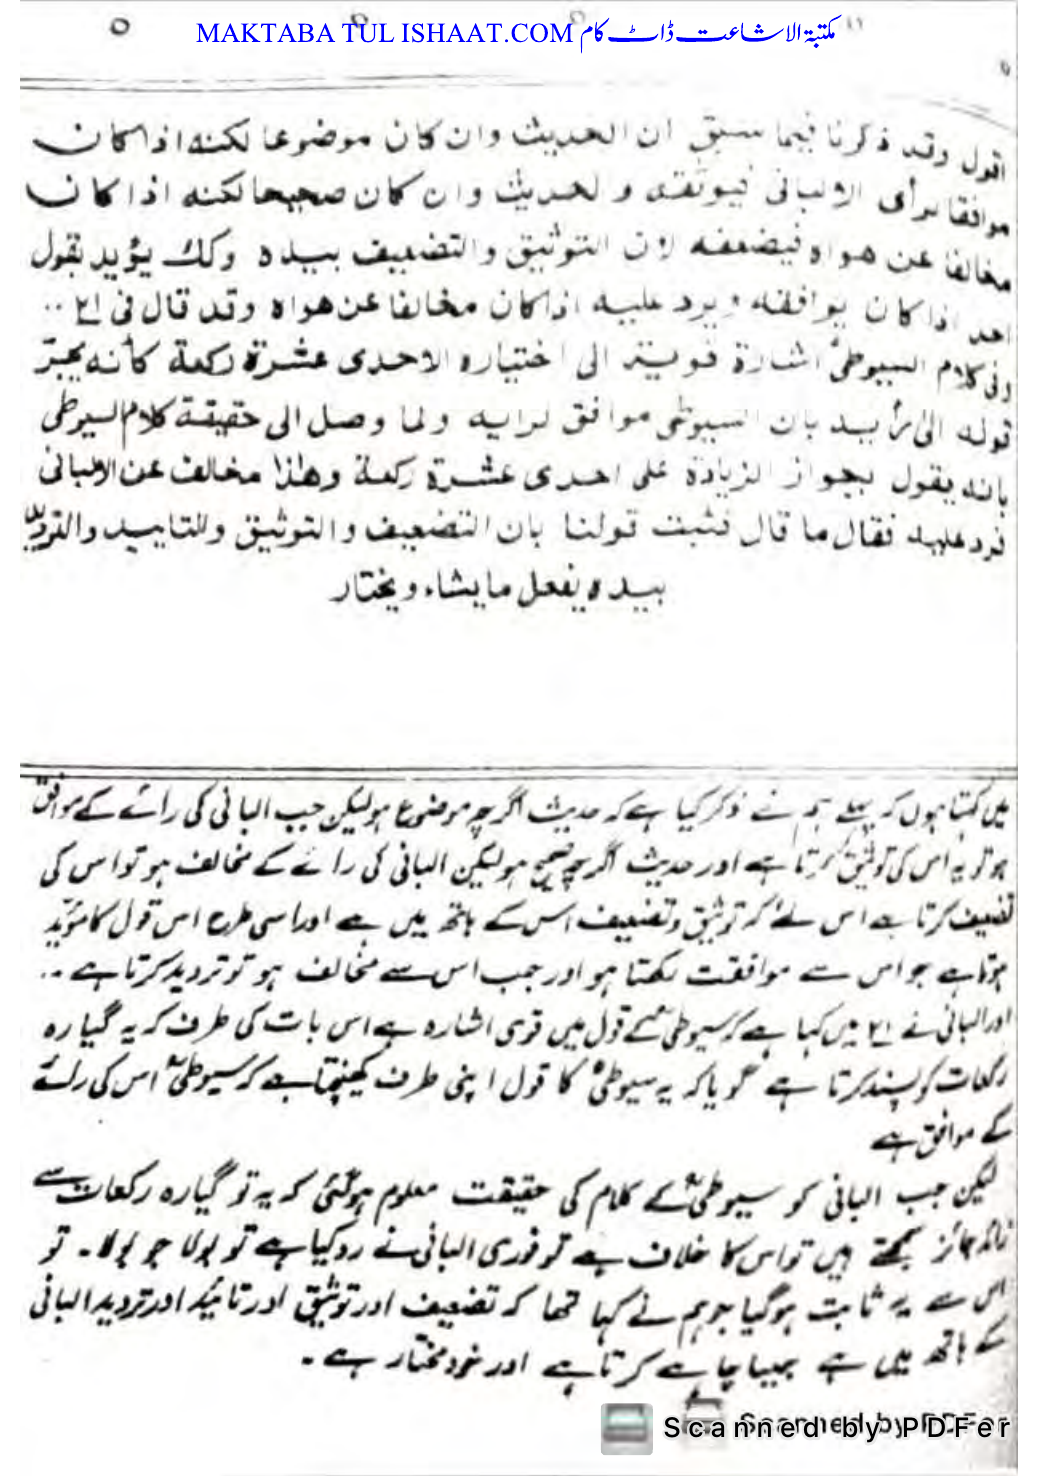 MAKTABA TUL ISHAAT.COM مکتبۃ الاشاعت ڈاٹ کام
اقول وقد ذكرنا فيما سبق ان الحديث وان كان موضوعا لكنه اذا كان
موافقا لرأى الالبانى فيوثقه والحديث وان كان صحيحا لكنه اذا كان
مخالفا عن هواه فيضعفه لان التوثيق والتضعيف بيده وكك يؤيد بقول
احد اذا كان يوافقه ويرد عليه اذا كان مخالفا عن هواه وقد قال فى ٢١ ..
وفى كلام السيوطىؒ اشارة قوية الى اختياره الاحدى عشرة ركعة كأنه يجرّ
قوله الى رأيه بان السيوطى موافق لرايه ولما وصل الى حقيقة كلام السيوطى
بانه يقول بجواز الزيادة على احدى عشرة ركعة وهذا مخالف عن الالبانى
فرد عليه فقال ما قال فثبت قولنا بان التضعيف والتوثيق والتاييد والترديد
بيده يفعل ما يشاء ويختار
میں کہتا ہوں کہ پہلے ہم نے ذکر کیا ہے کہ حدیث اگرچہ موضوع ہو لیکن جب البانی کی رائے کے موافق
ہو تو یہ اس کی توثیق کرتا ہے اور حدیث اگرچہ صحیح ہو لیکن البانی کی رائے کے مخالف ہو تو اس کی
تضعیف کرتا ہے اس لئے کہ توثیق و تضعیف اس کے ہاتھ میں ہے اور اسی طرح اس قول کا مؤید
ہوتا ہے جو اس سے موافقت رکھتا ہو اور جب اس سے مخالف ہو تو تردید کرتا ہے ۔.
اور البانی نے ٢١ میں کہا ہے کہ سیوطیؒ کے قول میں قوی اشارہ ہے اس بات کی طرف کہ یہ گیارہ
رکعات کو پسند کرتا ہے گویا کہ یہ سیوطیؒ کا قول اپنی طرف کھینچتا ہے کہ سیوطیؒ اس کی رائے
کے موافق ہے
لیکن جب البانی کو سیوطیؒ کے کلام کی حقیقت معلوم ہوگئی کہ یہ تو گیارہ رکعات سے
زائد جائز سمجھتے ہیں تو اس کا خلاف ہے تو فوری البانی نے رد کیا ہے تو بولا جو بولا۔ تو
اس سے یہ ثابت ہوگیا جو ہم نے کہا تھا کہ تضعیف اور توثیق اور تائید اور تردید البانی
کے ہاتھ میں ہے جیسا چاہے کرتا ہے اور خود مختار ہے ۔
Scanned by PDFer